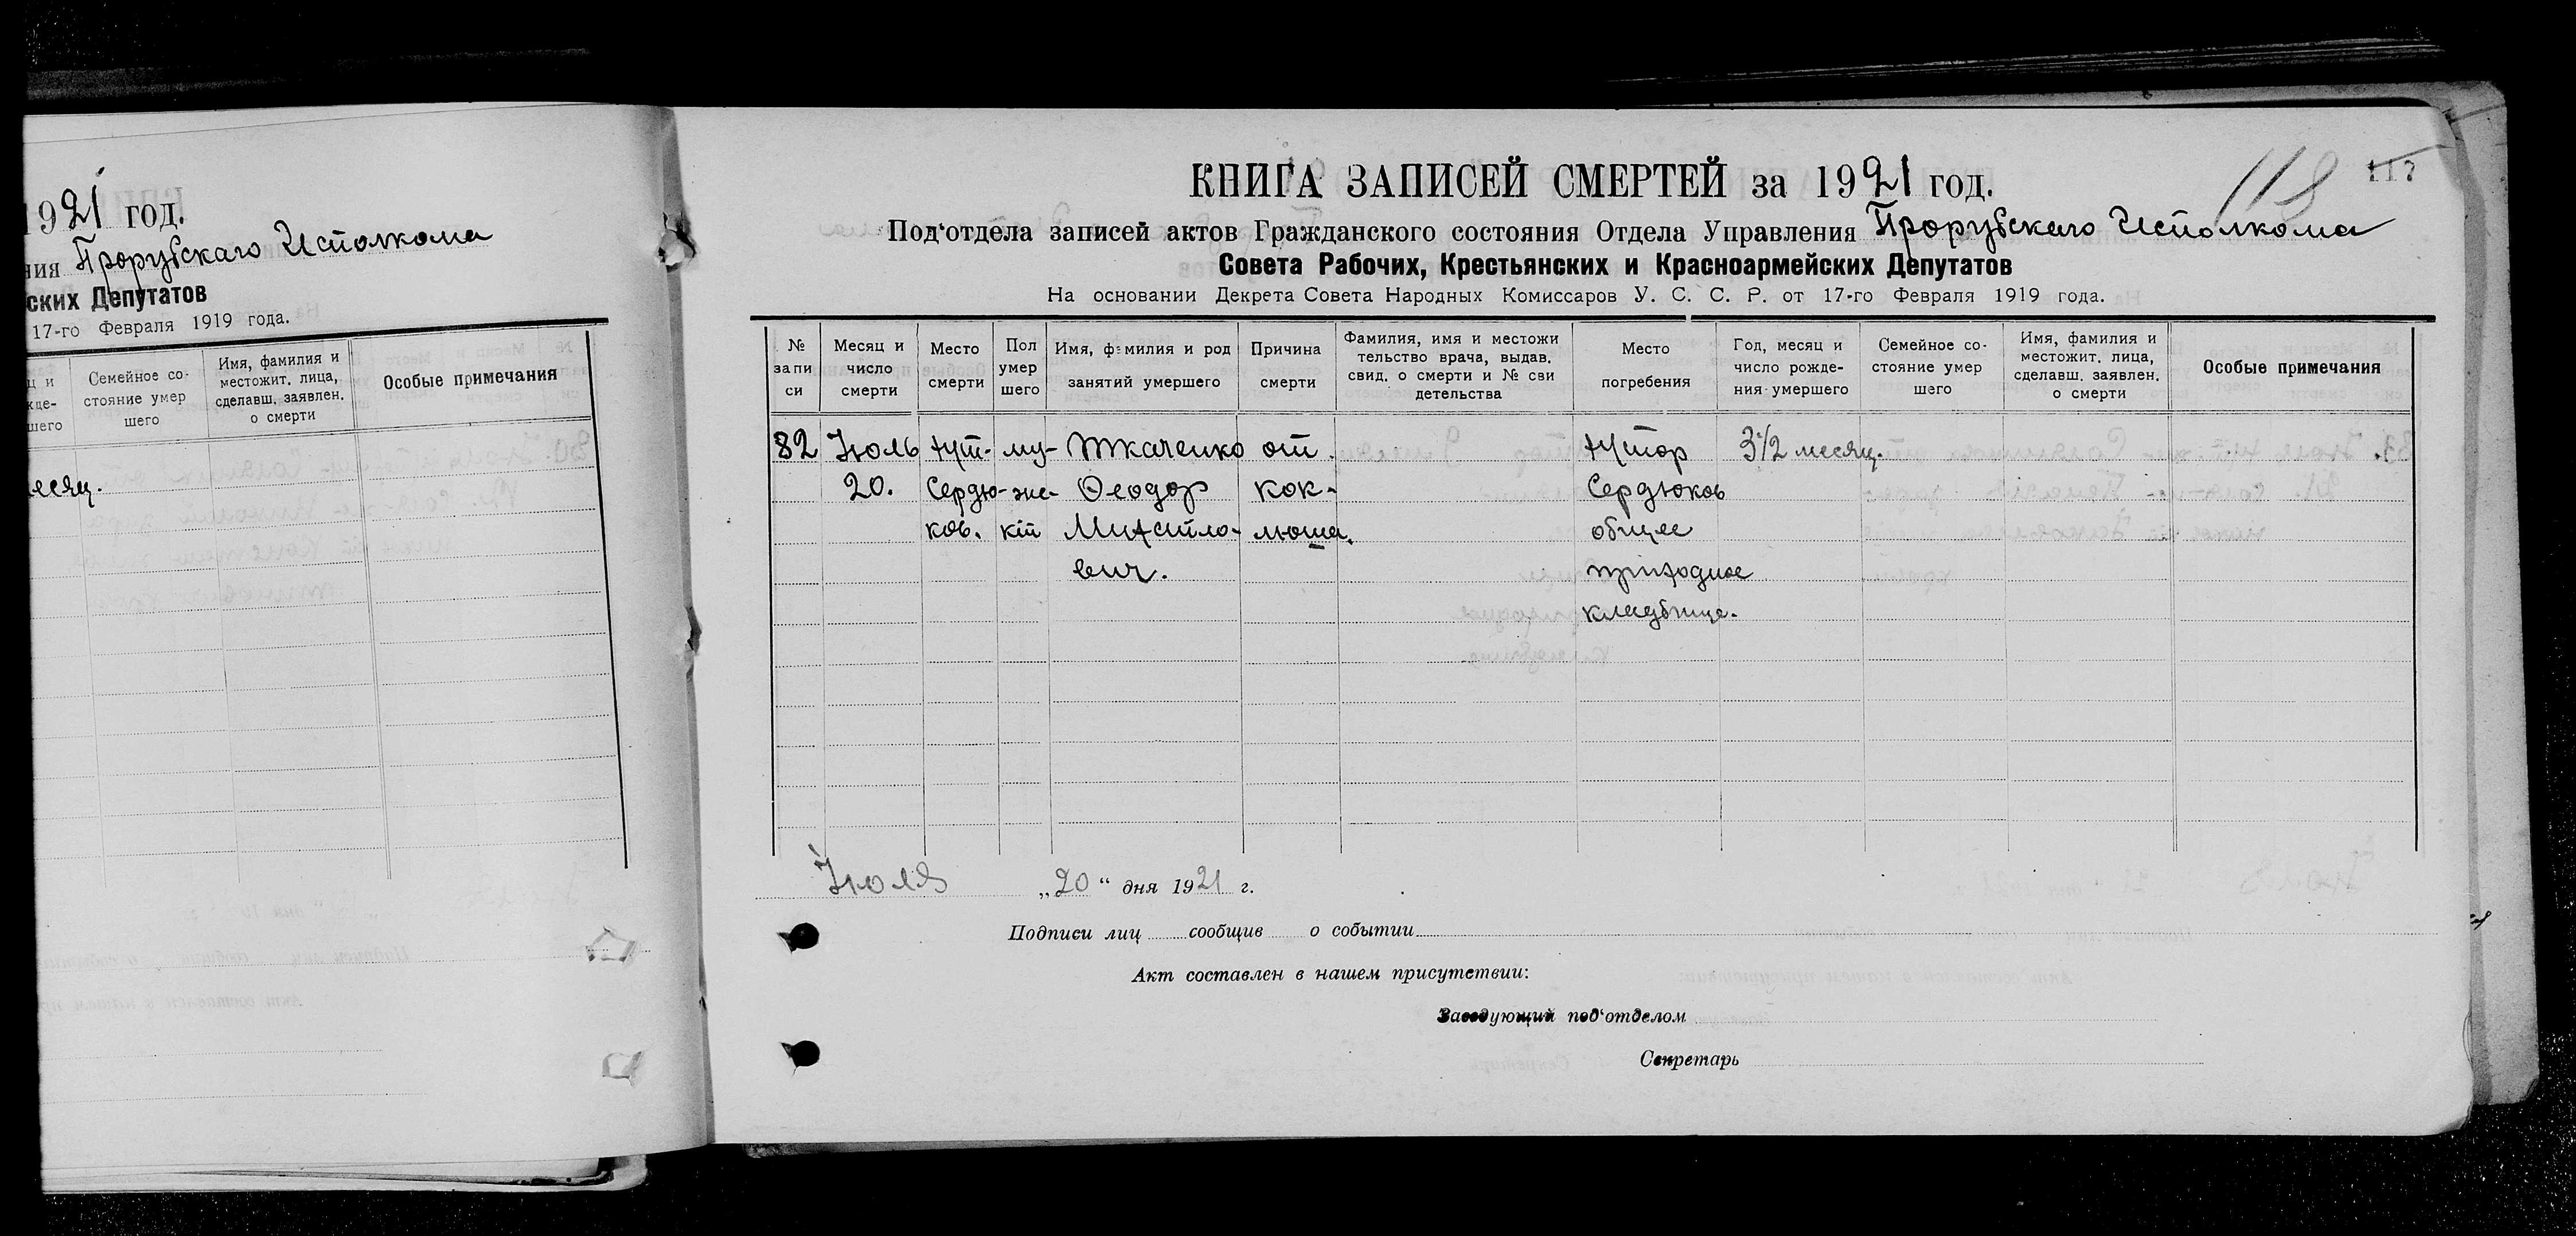 1921 год.
ния Прорубскаго Исполкома
ских Депутатов
17-го Февраля 1919 года.
ц и
жде-
шего
Семейное со-
стояние умер
шего
Имя, фамилия и
местожит. лица,
сделавш. заявлен.
о смерти
Особые примечания
есяц.
КНИГА ЗАПИСЕЙ СМЕРТЕЙ за 1921 год.
118
117
Под‘отдела записей актов Гражданского состояния Отдела Управления Прорубскаго Исполкома
Совета Рабочих, Крестьянских и Красноармейских Депутатов
На основании Декрета Совета Народных Комиссаров У. С. С. Р. от 17-го Февраля 1919 года.
№
запи
си
Месяц и
число
смерти
Место
смерти
Пол
умер
шего
Имя, фамилия и род
занятий умершего
Причина
смерти
Фамилия, имя и местожи
тельство врача, выдав.
свид. о смерти и № сви
детельства
Место
погребения
Год, месяц и
число рожде-
ния умершего
Семейное со-
стояние умер
шего
Имя, фамилия и
местожит. лица,
сделавш. заявлен.
о смерти
Особые примечания
82 Июль хут- му- Ткаченко от хутор 3 1/2 месяц.
20. Сердю- же- Феодор кок- Сердюков
ков. кт Михаило- люша. общее
вич. приходное
кладбище.
Июля „20“ дня 1921 г.
Подписи лиц сообщив о событии
Акт составлен в нашем присутствии:
Заведующий под‘отделом
Секретарь